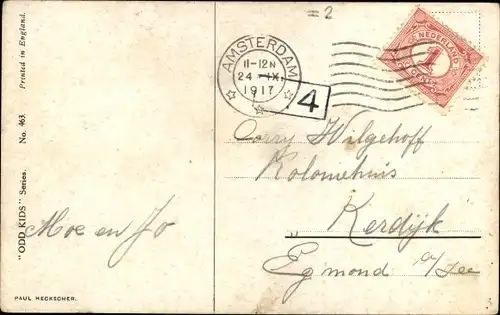 = 2
Printed in England.
No. 463.
"ODD KIDS" Series.
PAUL HECKSCHER.
Moe en Jo
AMSTERDAM
11-12N
24 IX
1917
4
NEDERLAND
1
CENT
Corry Wilgehoff
Koloniehuis
Kerdijk
Egmond a/zee